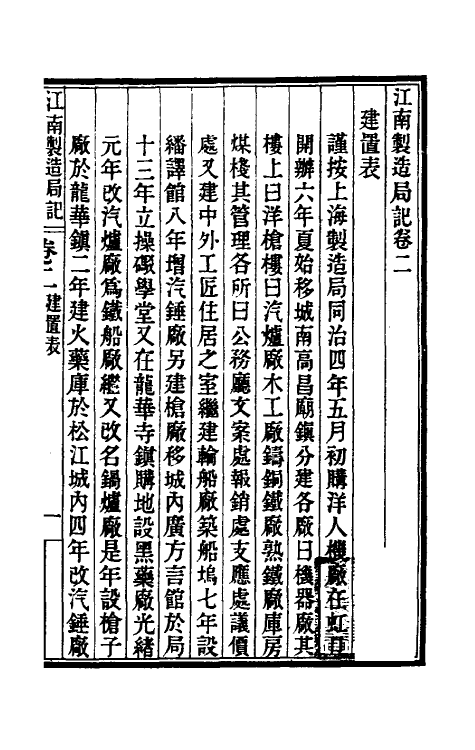 江南製造局記卷二
建置表
謹按上海製造局同治四年五月初購洋人機廠在虹口
開辦六年夏始移城南高昌廟鎮分建各廠曰機器廠其
樓上曰洋槍樓曰汽爐廠木工廠鑄銅鐵廠熟鐵廠庫房
煤棧其管理各所曰公務廳文案處報銷處支應處議價
處又建中外工匠住居之室繼建輪船廠築船塢七年設
繙譯館八年增汽錘廠另建槍廠移城內廣方言館於局
十三年立操礮學堂又在龍華寺鎮購地設黑藥廠光緒
元年改汽爐廠爲鐵船廠繼又改名鍋爐廠是年設槍子
廠於龍華鎮二年建火藥庫於松江城內四年改汽錘廠
江南製造局記 卷二 建置表 一